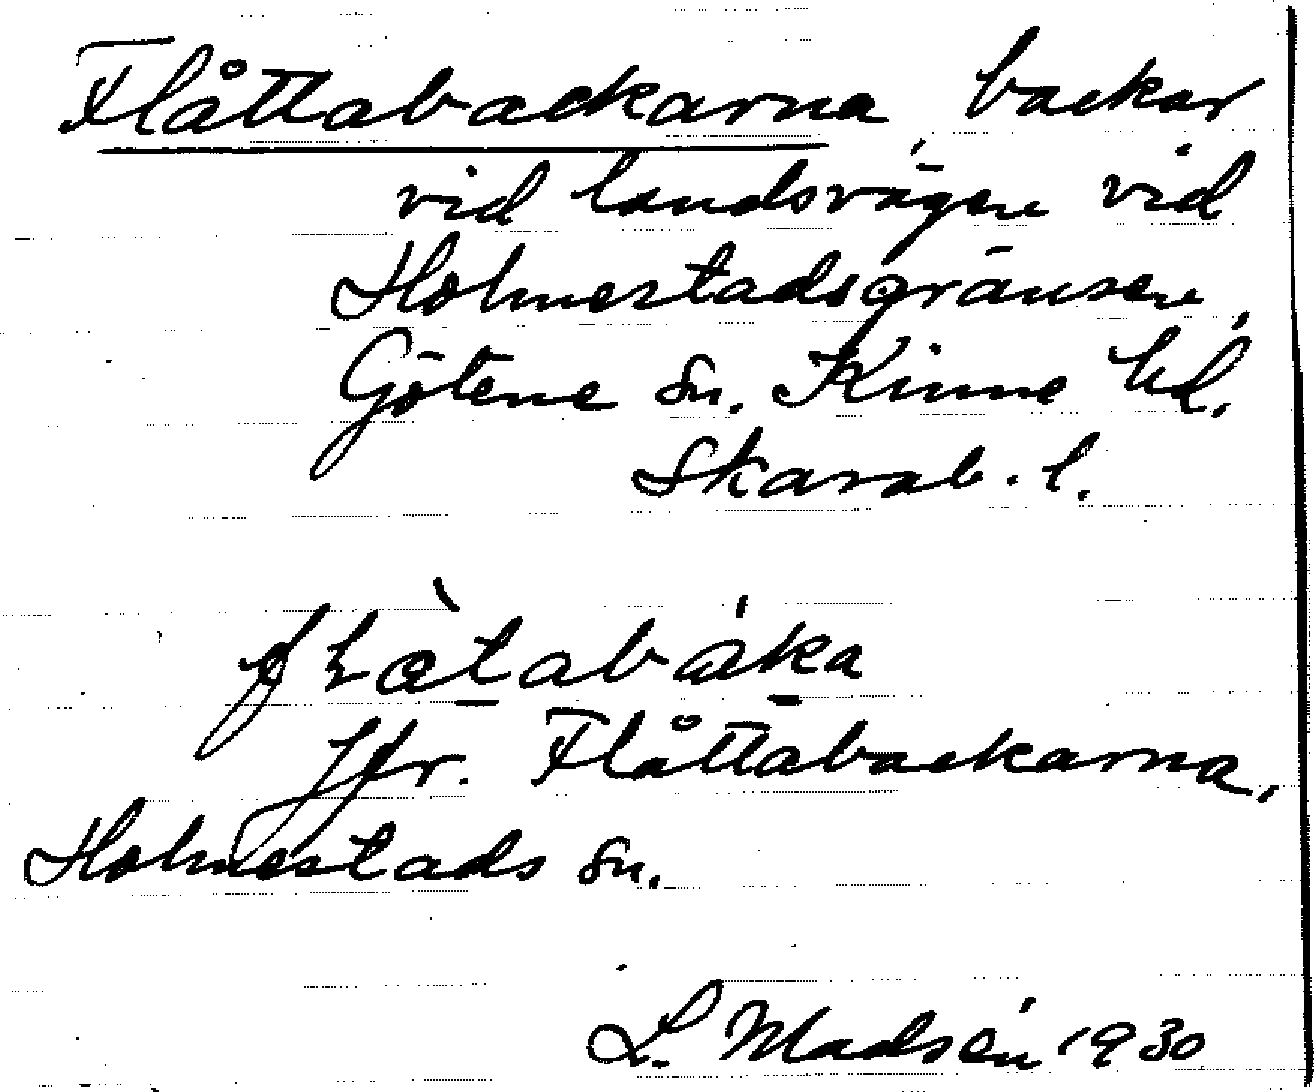 Flåttabackarna, backar
vid landsvägen vid
Holmestadsgränsen,
Götene sn. Kinne hd.
Skarab. l.
Jfr. Flåttabackarna,
Holmestads sn.
L. Madsén 1930